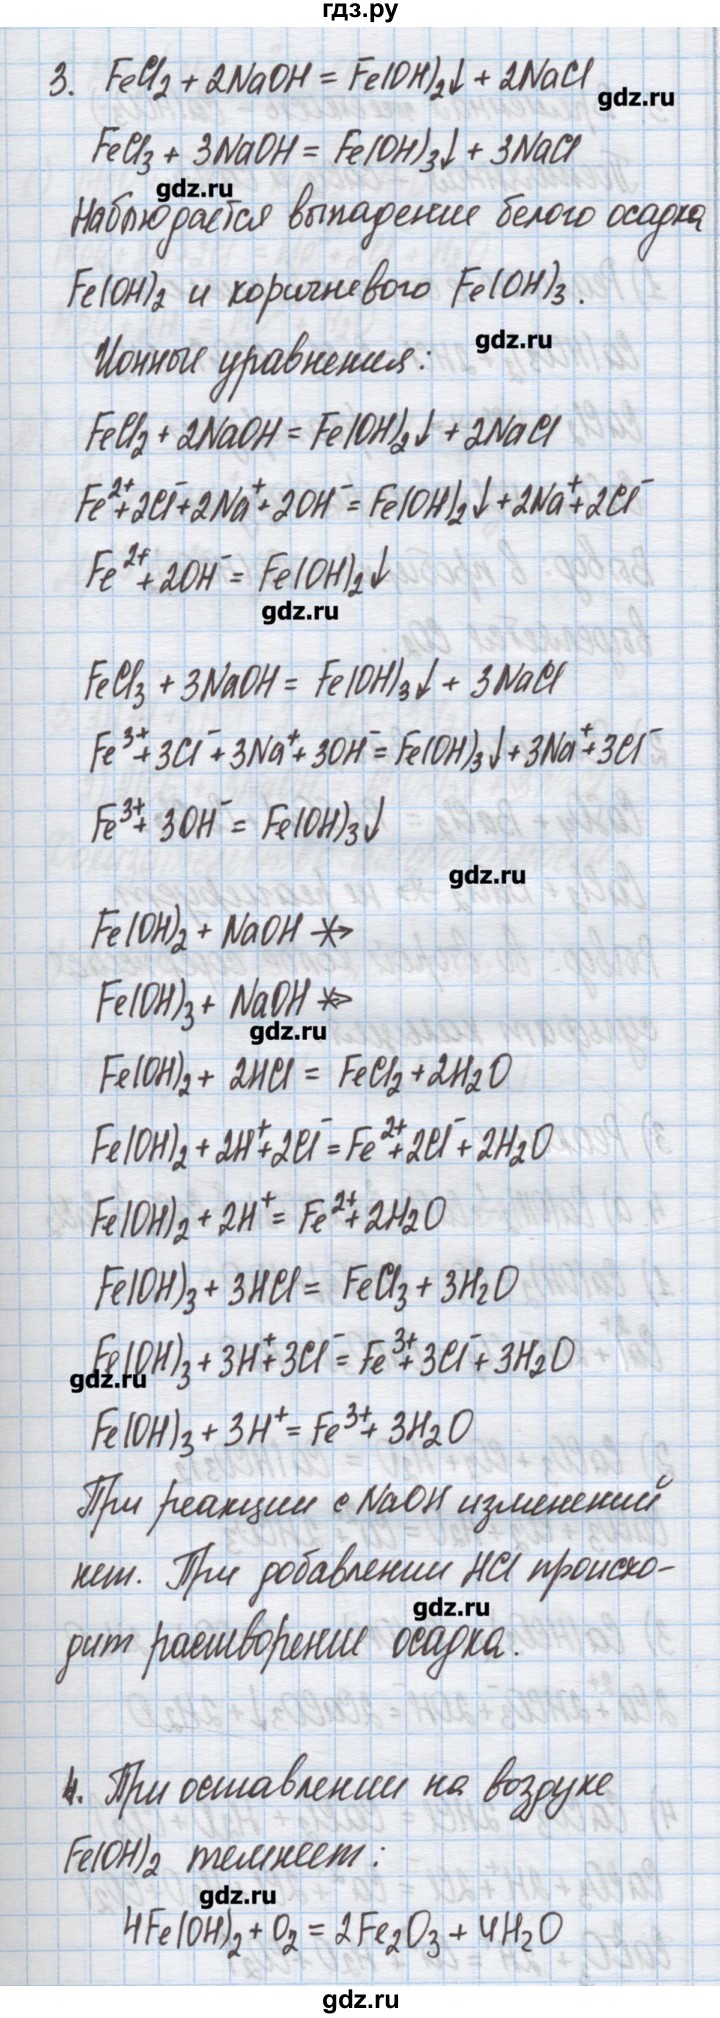 гдз.ру
3. FeCl₂ + 2NaOH = Fe(OH)₂↓ + 2NaCl
gdz.ru
FeCl₃ + 3NaOH = Fe(OH)₃↓ + 3NaCl
gdz.ru
Наблюдается выпадение белого осадка
Fe(OH)₂ и коричневого Fe(OH)₃.
gdz.ru
Ионные уравнения:
FeCl₂ + 2NaOH = Fe(OH)₂↓ + 2NaCl
Fe²⁺ + 2Cl⁻ + 2Na⁺ + 2OH⁻ = Fe(OH)₂↓ + 2Na⁺ + 2Cl⁻
Fe²⁺ + 2OH⁻ = Fe(OH)₂↓
gdz.ru
FeCl₃ + 3NaOH = Fe(OH)₃↓ + 3NaCl
Fe³⁺ + 3Cl⁻ + 3Na⁺ + 3OH⁻ = Fe(OH)₃↓ + 3Na⁺ + 3Cl⁻
Fe³⁺ + 3OH⁻ = Fe(OH)₃↓
gdz.ru
Fe(OH)₂ + NaOH ↛
Fe(OH)₃ + NaOH ↛
gdz.ru
Fe(OH)₂ + 2HCl = FeCl₂ + 2H₂O
Fe(OH)₂ + 2H⁺ + 2Cl⁻ = Fe²⁺ + 2Cl⁻ + 2H₂O
Fe(OH)₂ + 2H⁺ = Fe²⁺ + 2H₂O
Fe(OH)₃ + 3HCl = FeCl₃ + 3H₂O
Fe(OH)₃ + 3H⁺ + 3Cl⁻ = Fe³⁺ + 3Cl⁻ + 3H₂O
gdz.ru
Fe(OH)₃ + 3H⁺ = Fe³⁺ + 3H₂O
При реакции с NaOH изменений
нет. При добавлении HCl происхо-
gdz.ru
дит растворение осадка.
4. При оставлении на воздухе
Fe(OH)₂ темнеет:
gdz.ru
4Fe(OH)₂ + O₂ = 2Fe₂O₃ + 4H₂O
gdz.ru